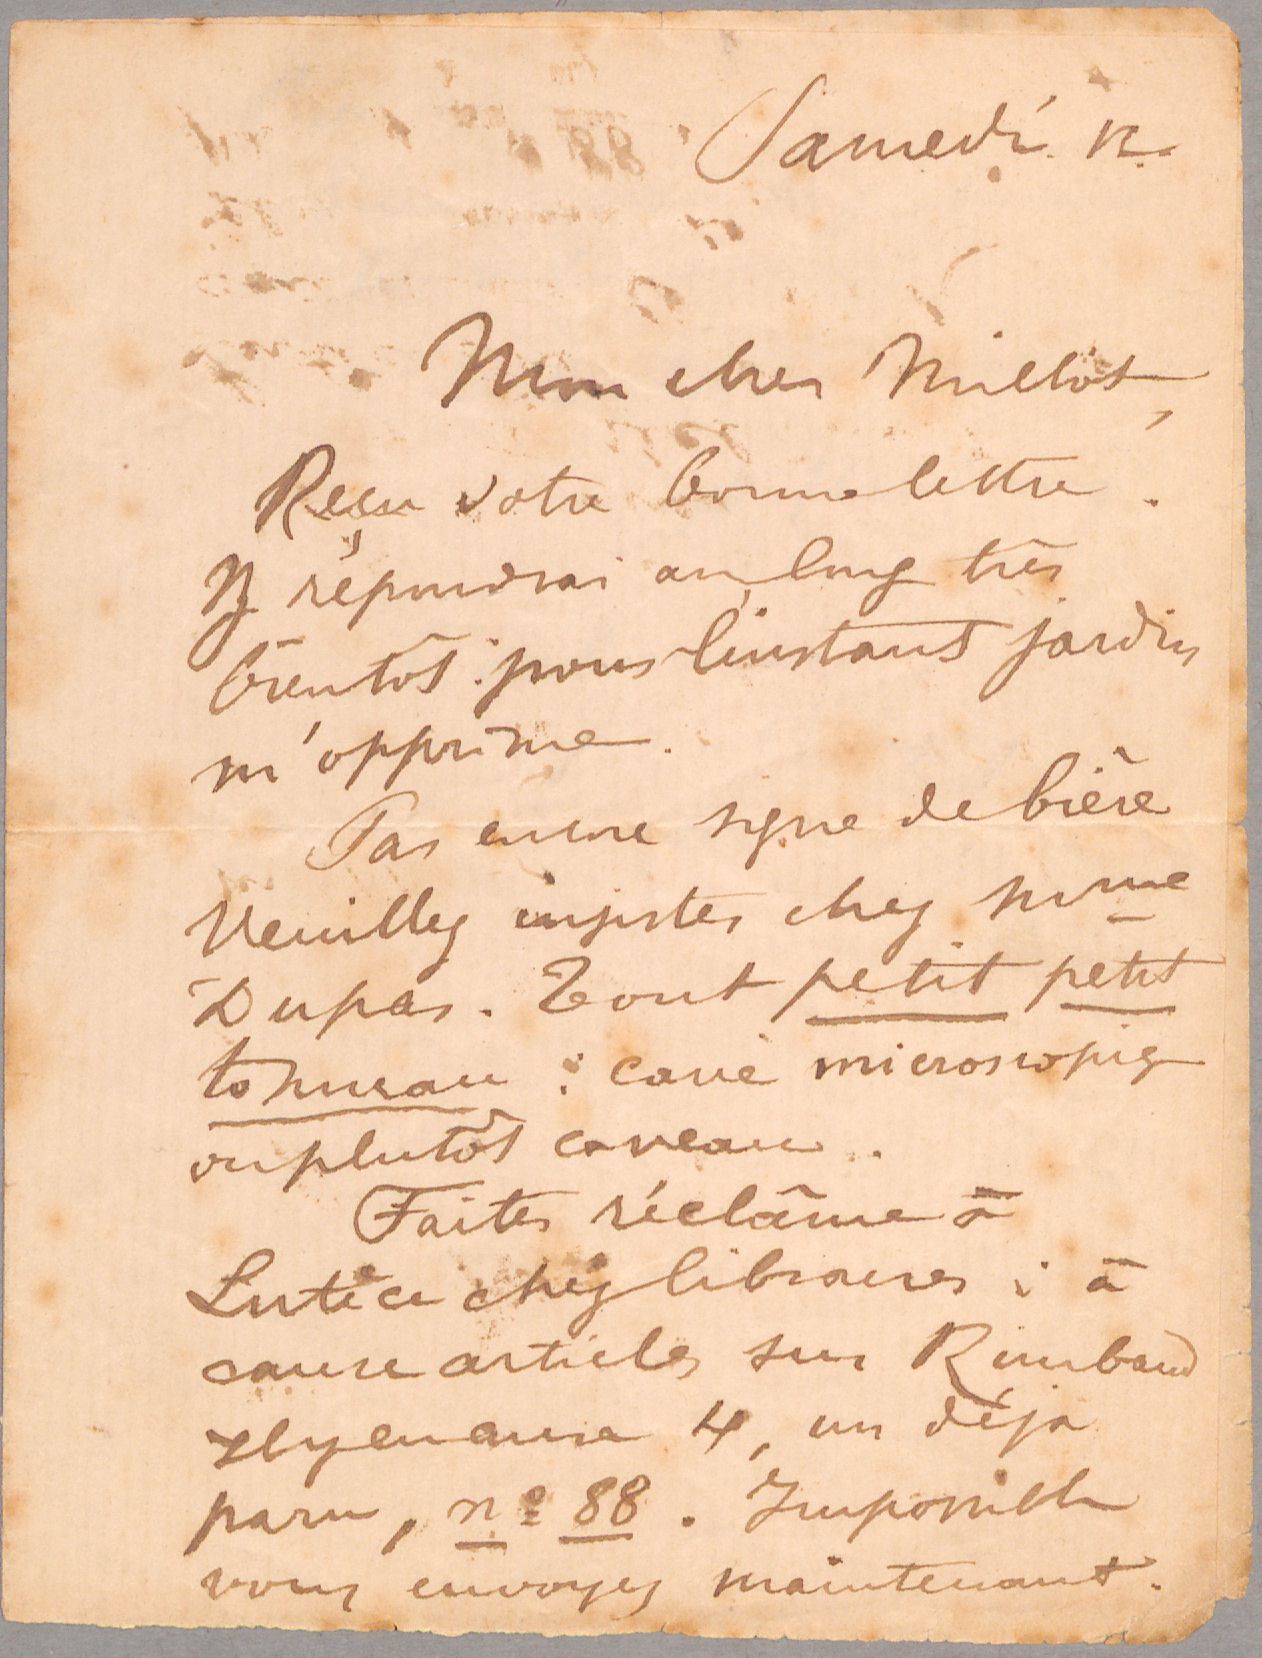 Samedi. 12.
Mon cher Millot,
Reçu votre bonne lettre.
Y répondrai au long très
bientôt : pour l'instant jardin
m'opprime.
Pas encore signe de bière
Veuillez insister chez Mme
Dupas. Tout petit petit
tonneau : cave microscopiq
ou plutôt caveau.
Faites réclâme à
Lutèce chez libraires : à
cause articles sur Rimbaud
Il y en aura 4, un déja
paru, no 88. Impossible
vous envoyer maintenant.